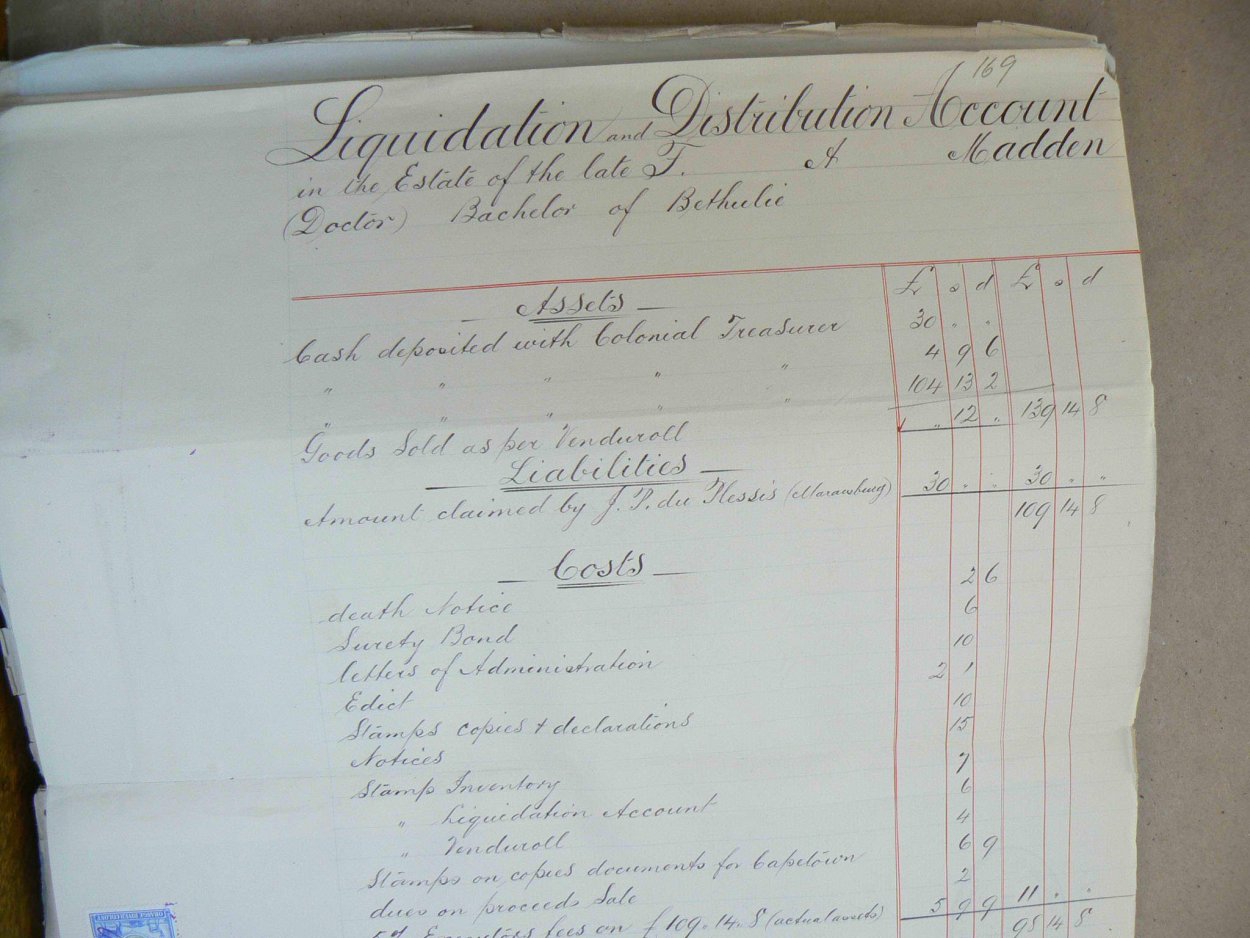 169
Liquidation and Distribution Account
in the Estate of the late F. A Madden
(Doctor) Bachelor of Bethulie
£ s d £ s d
Assets
Cash deposited with Colonial Treasurer 30 " "
" " " " " 4 9 6
" " " " " 104 13 2
Goods Sold as per Venduroll " 12 " 139 14 8
Liabilities
Amount claimed by J. P. du Plessis 30 " " 30 " "
109 14 8
Costs
death Notice 2 6
Surety Bond 6
letters of Administration 10
Edict 2 1
Stamps copies & declarations 10
Notices 15
Stamp Inventory 7
" Liquidation Account 6
" Venduroll 4
Stamps on copies documents for Capetown 6 9
dues on proceeds Sale 2
fees on £109.14.8 (actual assets) 5 9 9 11 " "
98 14 8
ORANGE RIVER COLONY